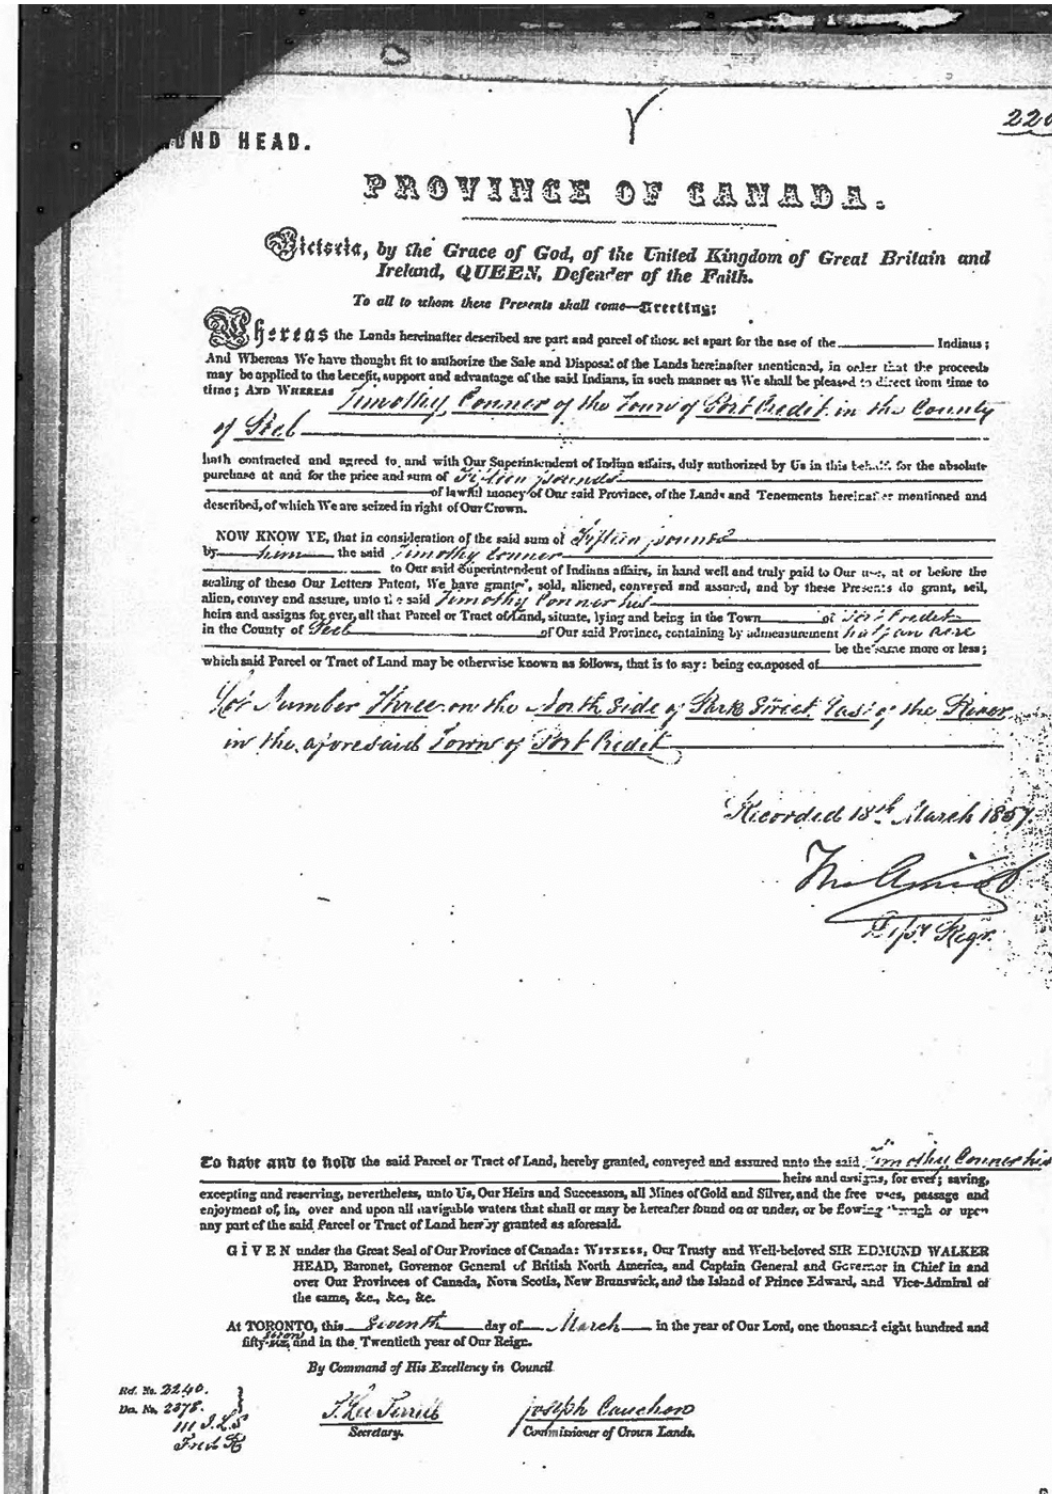 220
UND HEAD.
PROVINCE OF CANADA.
Victoria, by the Grace of God, of the United Kingdom of Great Britain and
Ireland, QUEEN, Defender of the Faith.
To all to whom these Presents shall come—Greeting:
Whereas the Lands hereinafter described are part and parcel of those set apart for the use of the Indians;
And Whereas We have thought fit to authorize the Sale and Disposal of the Lands hereinafter mentioned, in order that the proceeds
may be applied to the benefit, support and advantage of the said Indians, in such manner as We shall be pleased to direct from time to
time; AND WHEREAS Timothy Conner of the Town of Port Credit in the County
of Peel
hath contracted and agreed to and with Our Superintendent of Indian affairs, duly authorized by Us in this behalf, for the absolute
purchase at and for the price and sum of Fifteen pounds
of lawful money of Our said Province, of the Lands and Tenements hereinafter mentioned and
described, of which We are seized in right of Our Crown.
NOW KNOW YE, that in consideration of the said sum of Fifteen pounds
by him the said Timothy Conner
to Our said Superintendent of Indians affairs, in hand well and truly paid to Our use, at or before the
sealing of these Our Letters Patent, We have granted, sold, aliened, conveyed and assured, and by these Presents do grant, sell,
alien, convey and assure, unto the said Timothy Conner his
heirs and assigns for ever, all that Parcel or Tract of Land, situate, lying and being in the Town of Port Credit
in the County of Peel of Our said Province, containing by admeasurement half an acre
be the same more or less;
which said Parcel or Tract of Land may be otherwise known as follows, that is to say: being composed of
Lot Number Three on the North Side of Park Street East of the River
in the aforesaid Town of Port Credit
Recorded 18th March 1857.
Depy Regr.
To have and to hold the said Parcel or Tract of Land, hereby granted, conveyed and assured unto the said Timothy Conner his
heirs and assigns, for ever; saving,
excepting and reserving, nevertheless, unto Us, Our Heirs and Successors, all Mines of Gold and Silver, and the free uses, passage and
enjoyment of, in, over and upon all navigable waters that shall or may be hereafter found on or under, or be flowing through or upon
any part of the said Parcel or Tract of Land hereby granted as aforesaid.
GIVEN under the Great Seal of Our Province of Canada: WITNESS, Our Trusty and Well-beloved SIR EDMUND WALKER
HEAD, Baronet, Governor General of British North America, and Captain General and Governor in Chief in and
over Our Provinces of Canada, Nova Scotia, New Brunswick, and the Island of Prince Edward, and Vice-Admiral of
the same, &c., &c., &c.
At TORONTO, this Seventh day of March in the year of Our Lord, one thousand eight hundred and
fifty-six, seven and in the Twentieth year of Our Reign.
By Command of His Excellency in Council
Rd. No. 2240.
Des. No. 2378.
T. Lee Terrill
Secretary.
Joseph Cauchon
Commissioner of Crown Lands.